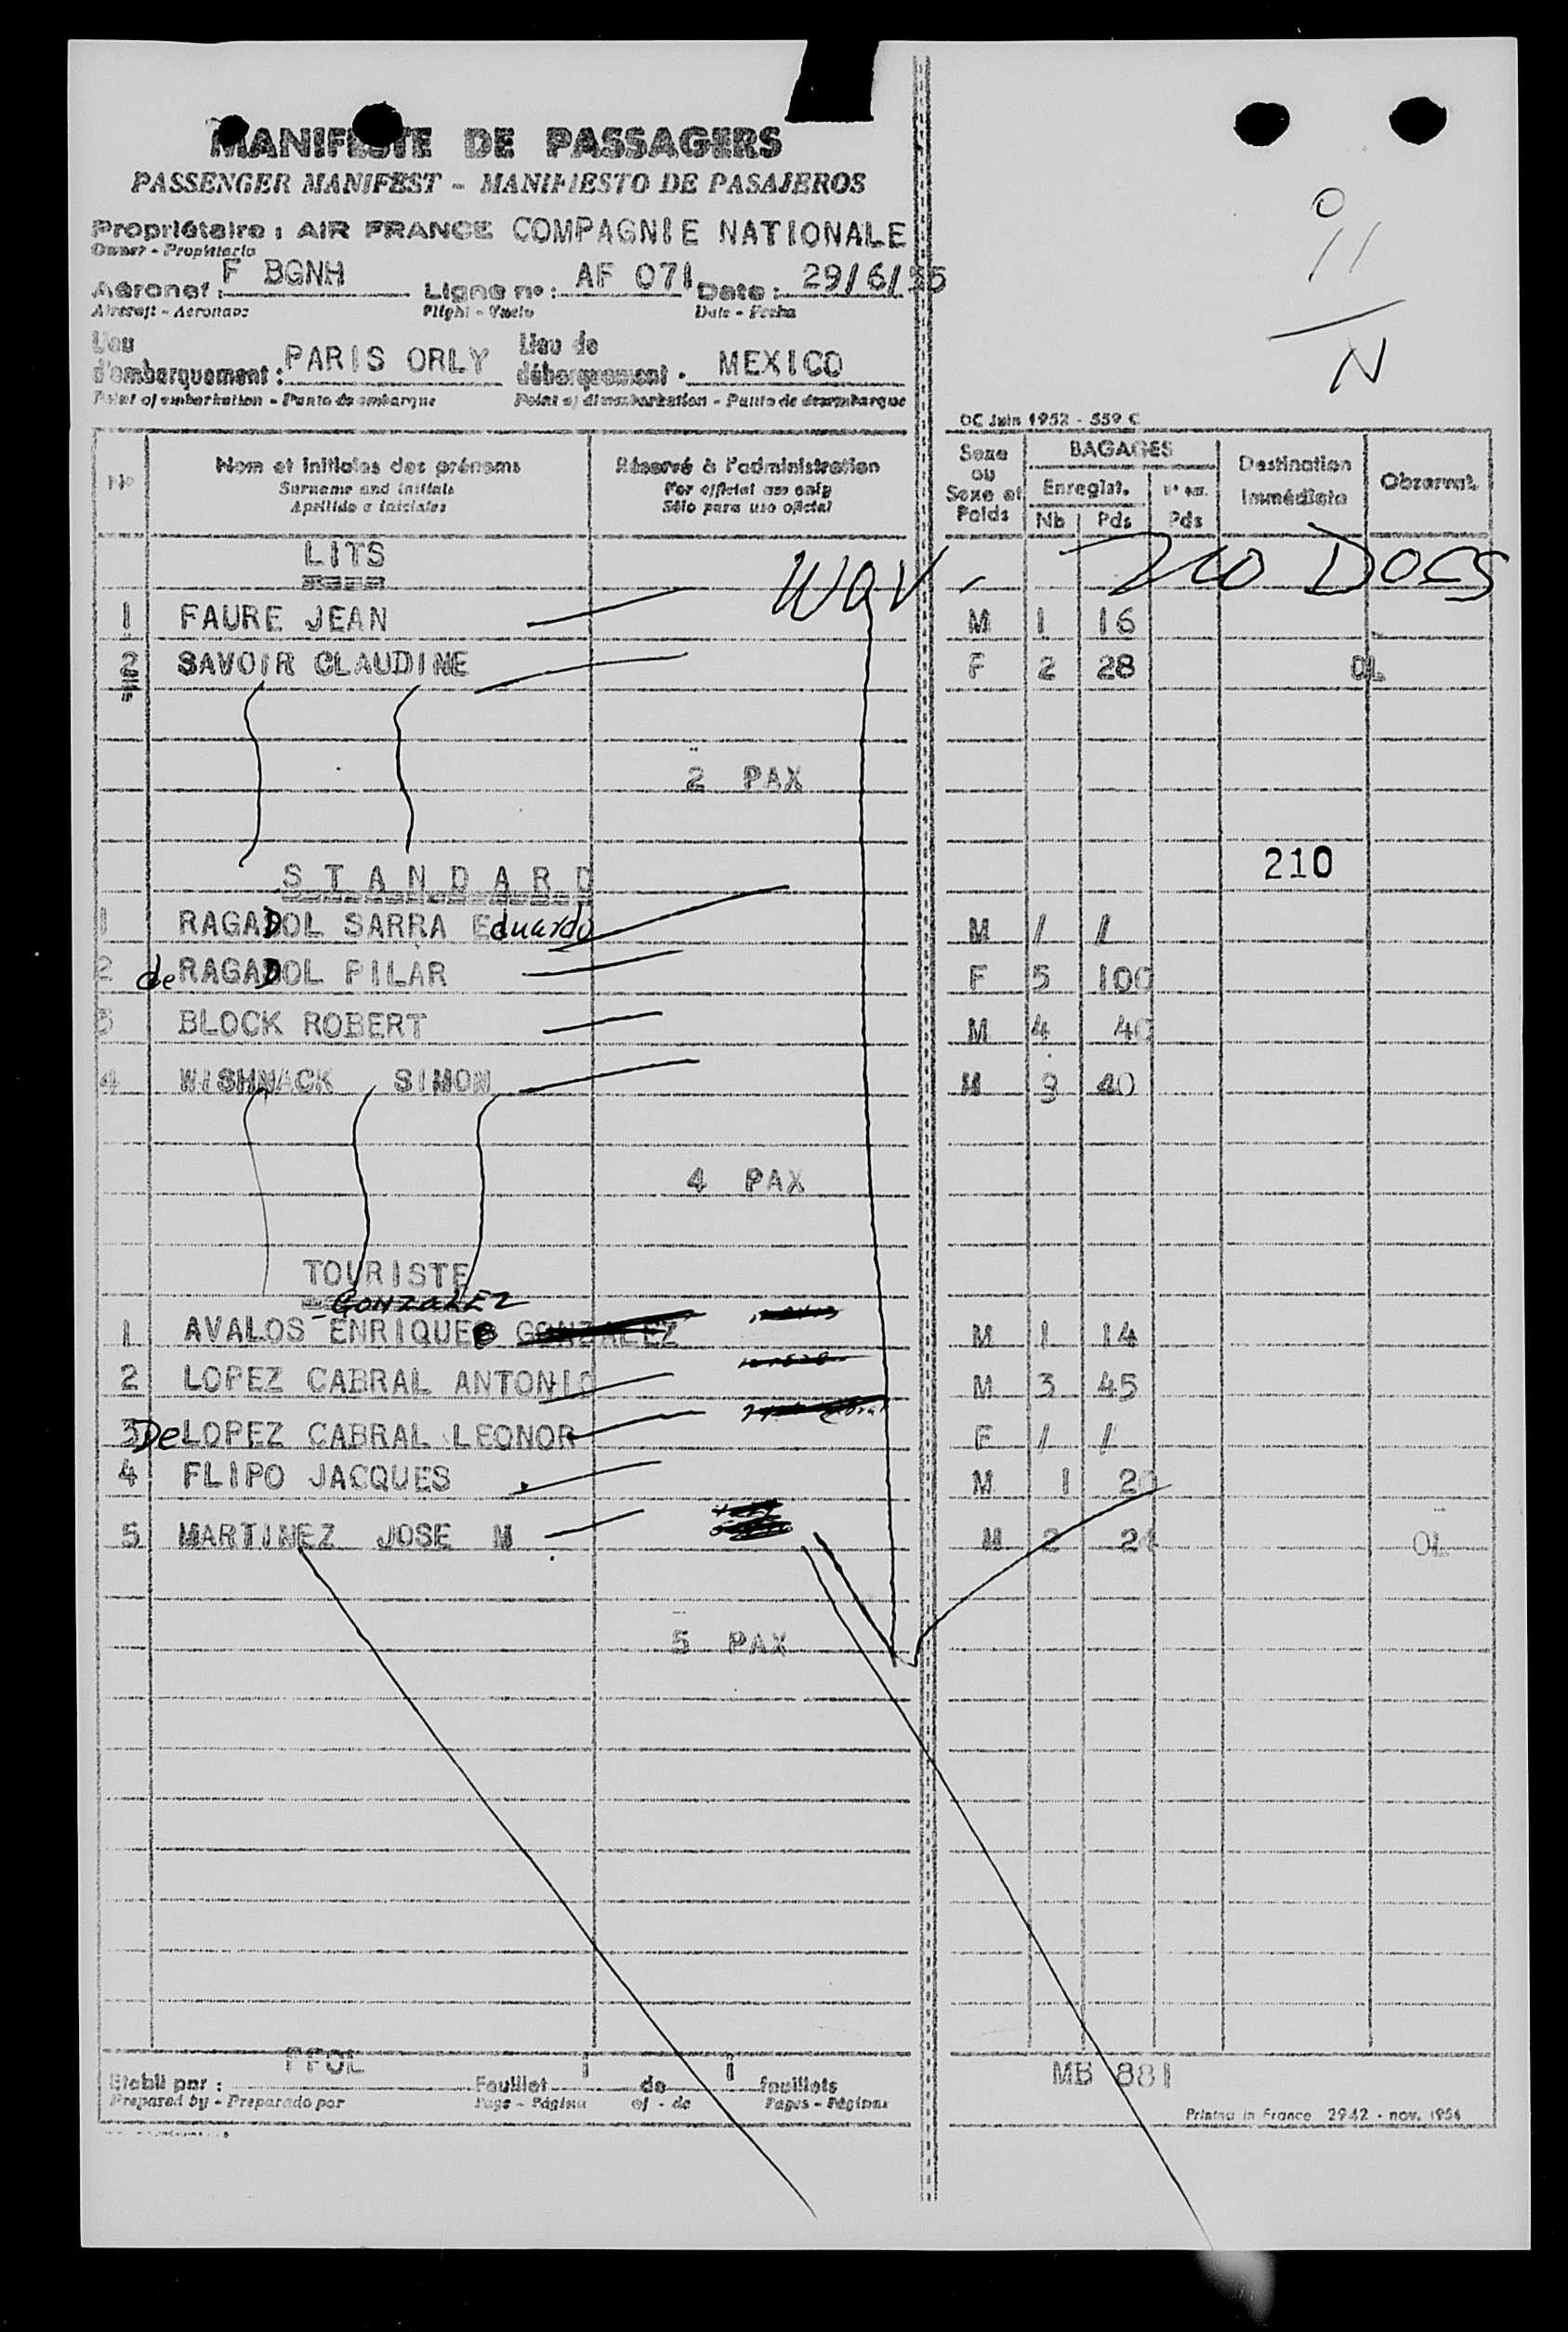 MANIFESTE DE PASSAGERS
PASSENGER MANIFEST - MANIFIESTO DE PASAJEROS
Propriétaire : AIR FRANCE COMPAGNIE NATIONALE
Owner - Propietario
Aéronef : F BGNH Ligne nº : AF 071 Date : 29/6/55
Aircraft - Aeronave Flight - Vuelo Date - Fecha
Lieu d'embarquement : PARIS ORLY Lieu de débarquement . MEXICO
Point of embarkation - Punto de embarque Point of disembarkation - Punto de desembarque
0
11
N
OC Juin 1952 - 559 C
Nº Nom et initiales des prénoms Réservé à l'administration Sexe ou Sexe et Poids BAGAGES Destination immédiate Observat.
Surname and initials For official use only Enregist.
Apellido e iniciales Sólo para uso oficial Nb Pds Pds
LITS
DOCS
1 FAURE JEAN M 1 16
2 SAVOIR CLAUDINE F 2 28 OL
2 PAX
210
STANDARD
1 RAGADOL SARRA Eduardo M / /
2 de RAGADOL PILAR F 5 100
3 BLOCK ROBERT M 4 40
4 WISHNACK SIMON M 3 40
4 PAX
TOURISTE
GONZALEZ
1 AVALOS ENRIQUE GONZALEZ M 1 14
2 LOPEZ CABRAL ANTONIO M 3 45
3 De LOPEZ CABRAL LEONOR F / /
4 FLIPO JACQUES M 1 20
5 MARTINEZ JOSE M M 2 OL
5 PAX
Etabli par : Feuillet 1 de 1 feuillets MB 881
Prepared by - Preparado por Page - Página of - de Pages - Páginas
Printed in France 2942 - nov. 1954